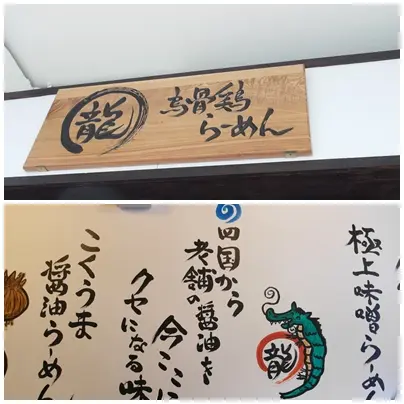 龍
烏骨鶏
らーめん
極上味噌らーめん
龍
四国から
老舗の醤油を
今ここに
クセになる味
こくうま
醤油らーめん